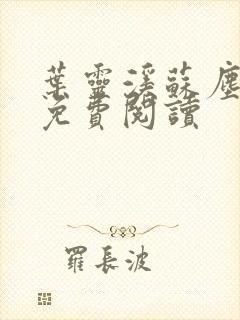 葉靈溪蘇塵
免費閱讀
羅長波